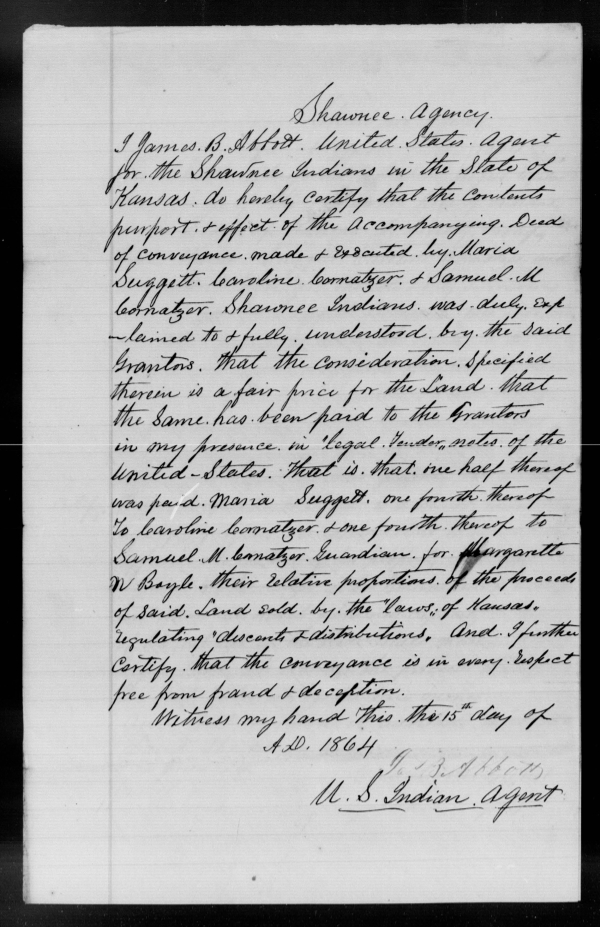 Shawnee. Agency.
I James. B. Abbott. United. States. Agent
for. the Shawnee Indians in the State of
Kansas. do hereby certify that the contents
purport. & effect. of the accompanying. Deed
of conveyance. made & executed. by. Maria
Suggett. Caroline. Cornatzer. & Samuel. M
Cornatzer. Shawnee Indians. was. duly. Exp
-lained to & fully. understood. by. the said
Grantors. that the consideration. specified
therein is a fair price for the Land. that
the Same. has. been paid to the Grantors
in my presence. in "legal. Tender" notes. of the
United-States. That is. that. one half thereof
was paid. Maria Suggett. one fourth. thereof
To Caroline Cornatzer. & one fourth. thereof to
Samuel. M. Cornatzer. Guardian. for. Margarette
N Boyle. their relative proportions. of the proceeds
of said. Land sold. by. the "laws" of Kansas.
regulating "descents & distributions". And. I further
Certify. that the conveyance is in every. respect
free from fraud & deception.
Witness my hand this. the 15th day of
A.D. 1864
Ja. B. Abbott
U. S. Indian. Agent